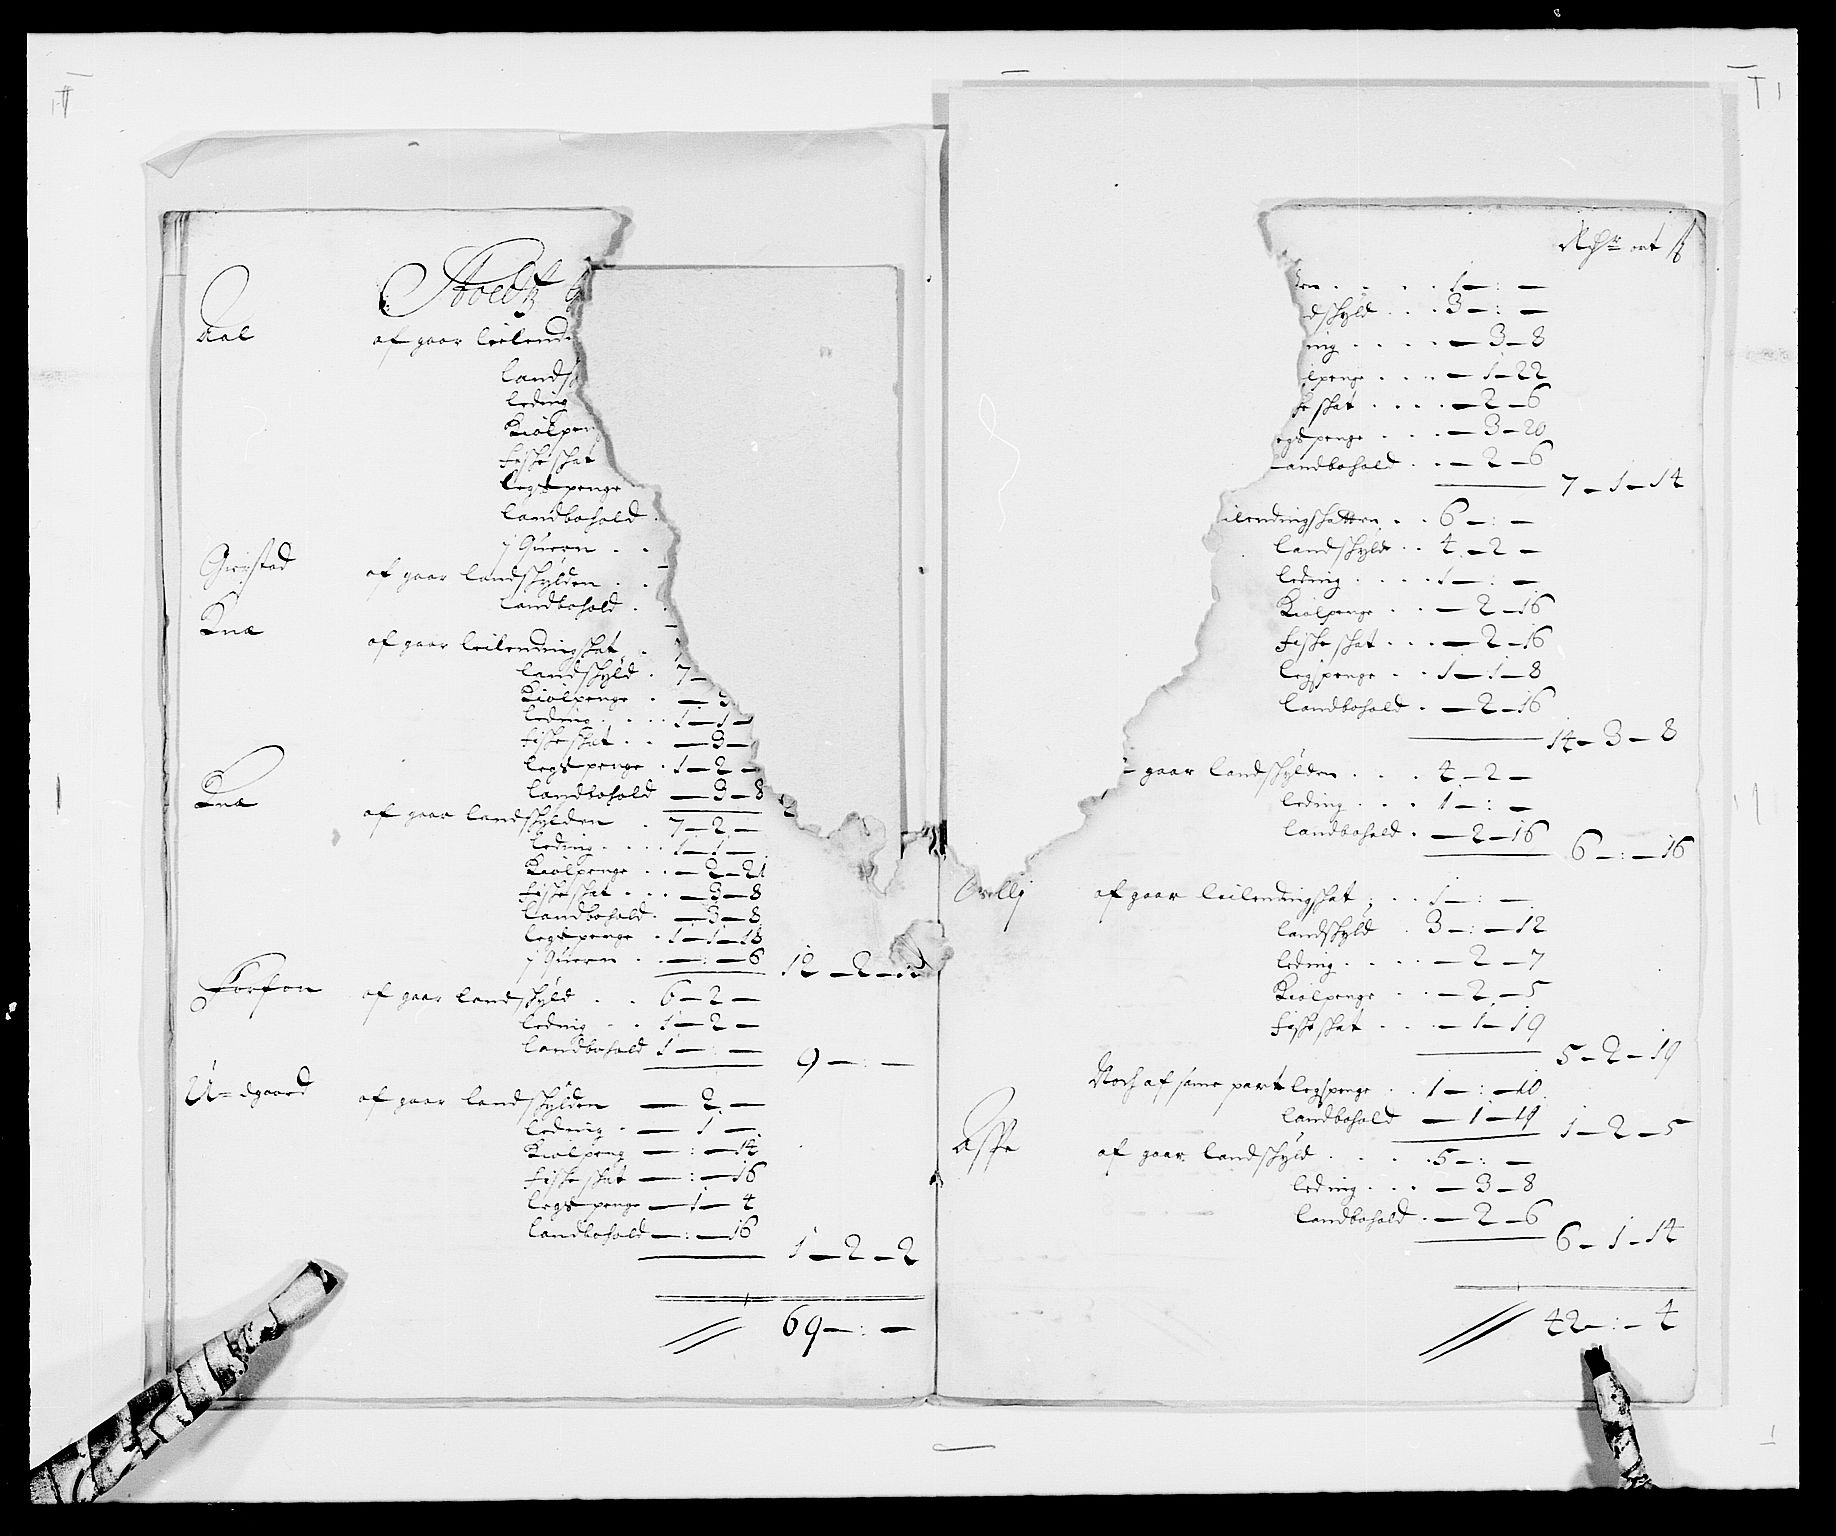 Aal af gaar leilend
landsh
leding
Kiølpen
fischeschat
legspenge
landbohold
j Quern . .
Gierstad af gaar landschylden . .
landbohold . .
Knæ af gaar leilendingschat .
landschyld . 7 —
Kiølpenge . — 3
leding . . . . 1 — 1 —
fischeschat . . — 3 —
legspenge . 1 — 2 —
landbohold — 3 — 8
Knæ af gaar landschylden . 7 — 2 —
leding . . . . 1 — 1 —
Kiølpenge . . — 2 — 21
fischeschat . . . — 3 — 8
landbohold . — 3 — 8
legspenge . 1 — 1 — 18
j Quern . . — : — 6
12 — 2 —
af gaar landschyld . . 6 — 2 —
leding . . 1 — 2 —
landbohold 1 — : —
9 — : —
af gaar landschylden — 2 —
leding . — 1 —
Kiølpeng — : — 14
fischeschat — : — 16
legspenge — 1 — 4
landbohold — : — 16
1 — 2 — 2
69 — : —
Rdr ort ß
den . . . . 1 — : —
dschyld . . . 3 — : —
ing . . . . — 3 — 8
lpenge . . . — 1 — 22
heschat . . . . — 2 — 6
egspenge . . . — 3 — 20
landbohold . . — 2 — 6
7 — 1 — 14
ilendingschatten . . 6 — : —
landschyld . . 4 — 2 —
leding . . . . 1 — : —
Kiølpenge . . — 2 — 16
fischeschat . . . — 2 — 16
legspenge . . 1 — 1 — 8
landbohold . — 2 — 16
14 — 3 — 8
gaar landschylden . . . 4 — 2 —
leding . . . 1 — : —
landbohold . — 2 — 16
6 — : — 16
af gaar leilendingschat . . . 1 — : —
landschyld . 3 — : — 12
leding . . . . — 2 — 7
Kiølpenge . . — 2 — 5
fischeschat . . . — 1 — 19
5 — 2 — 19
Noch af same part legspenge . . 1 — : — 10
landbohold — 1 — 19
1 — 2 — 5
af gaar landschyld . . . . 5 — : —
leding . . . — 3 — 8
landbohold . — 2 — 6
6 — 1 — 14
42 — : — 4